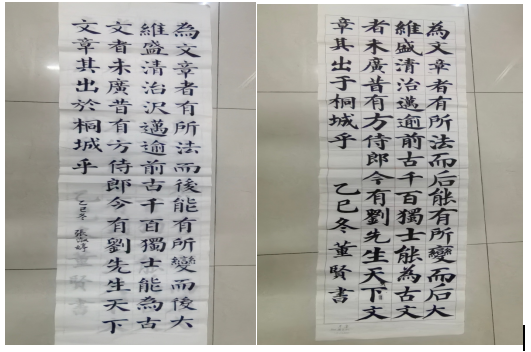 為文章者有所法而後能有所變而後大
維盛清治沢邁逾前古千百獨士能為古
文者未廣昔有方侍郎今有劉先生天下
文章其出於桐城乎
乙巳冬
為文章者有所法而后能有所變而后大
維盛清治邁逾前古千百獨士能為古文
者未廣昔有方侍郎今有劉先生天下文
章其出于桐城乎
乙巳冬董賢書